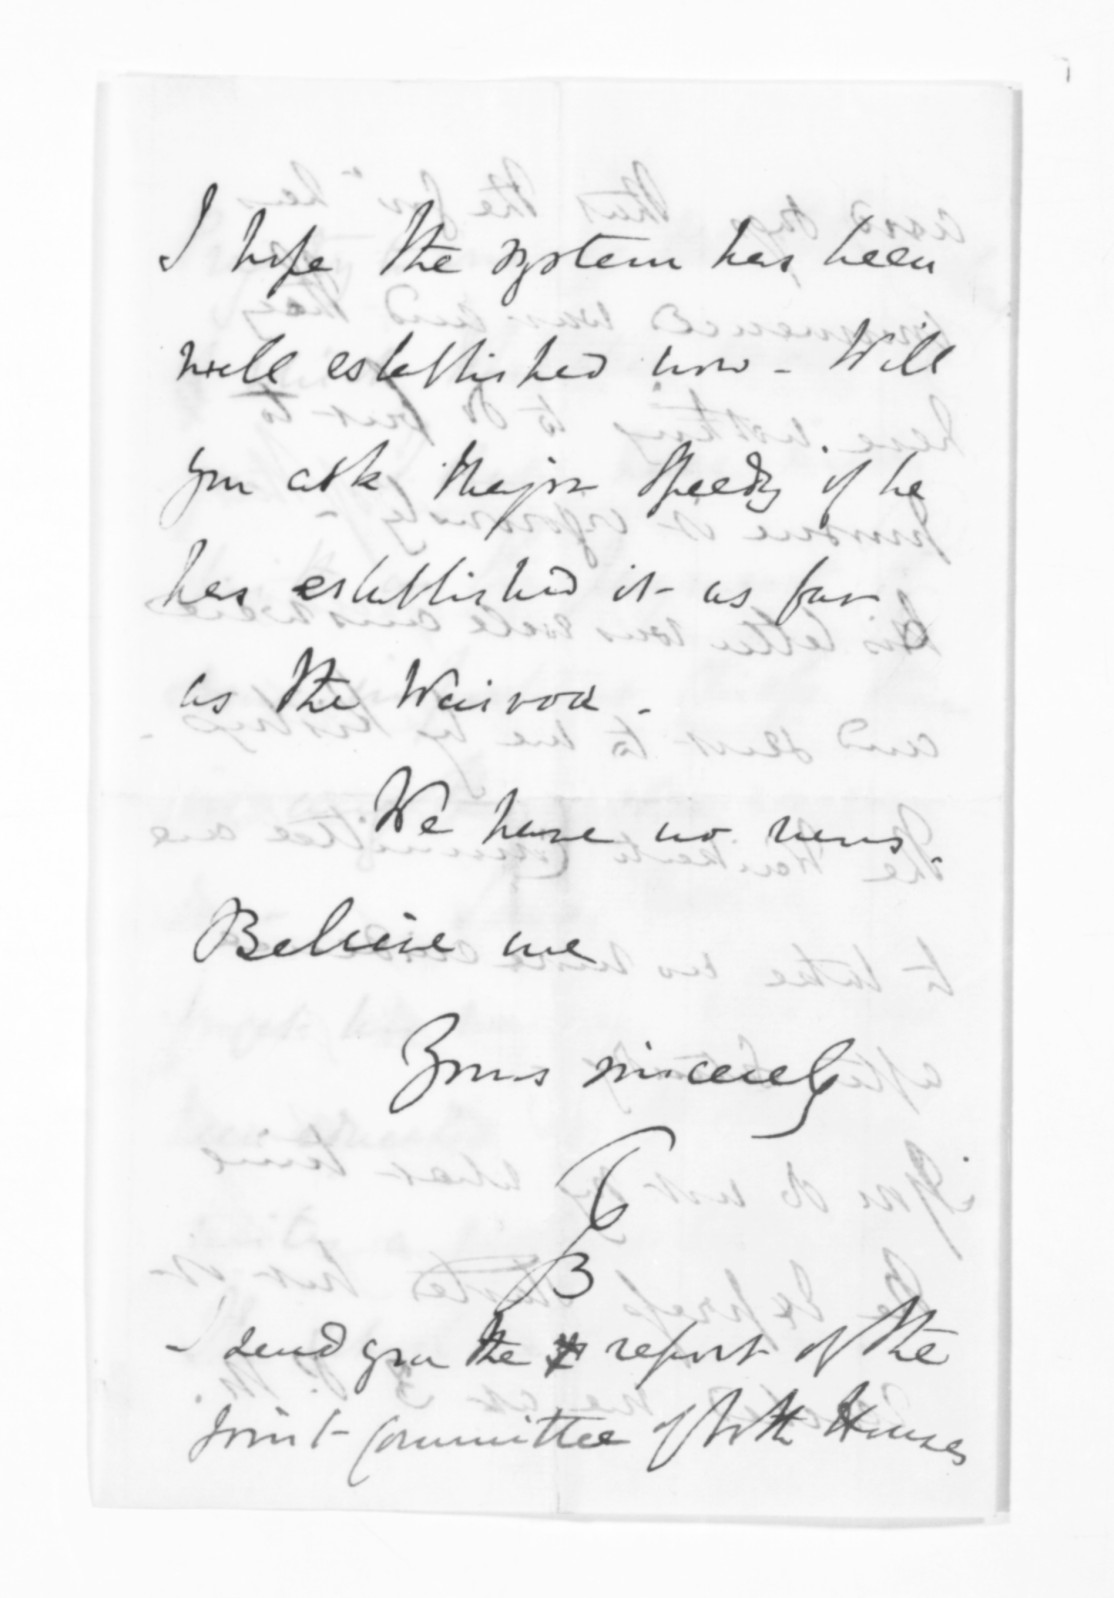 I hope the system has been
well established now - Will
you ask Major Speedy if he
has established it as far
as the Wairoa.
We have no news.
Believe me
Yours sincerely
G
B
I send you the report of the
joint Committee of both Houses